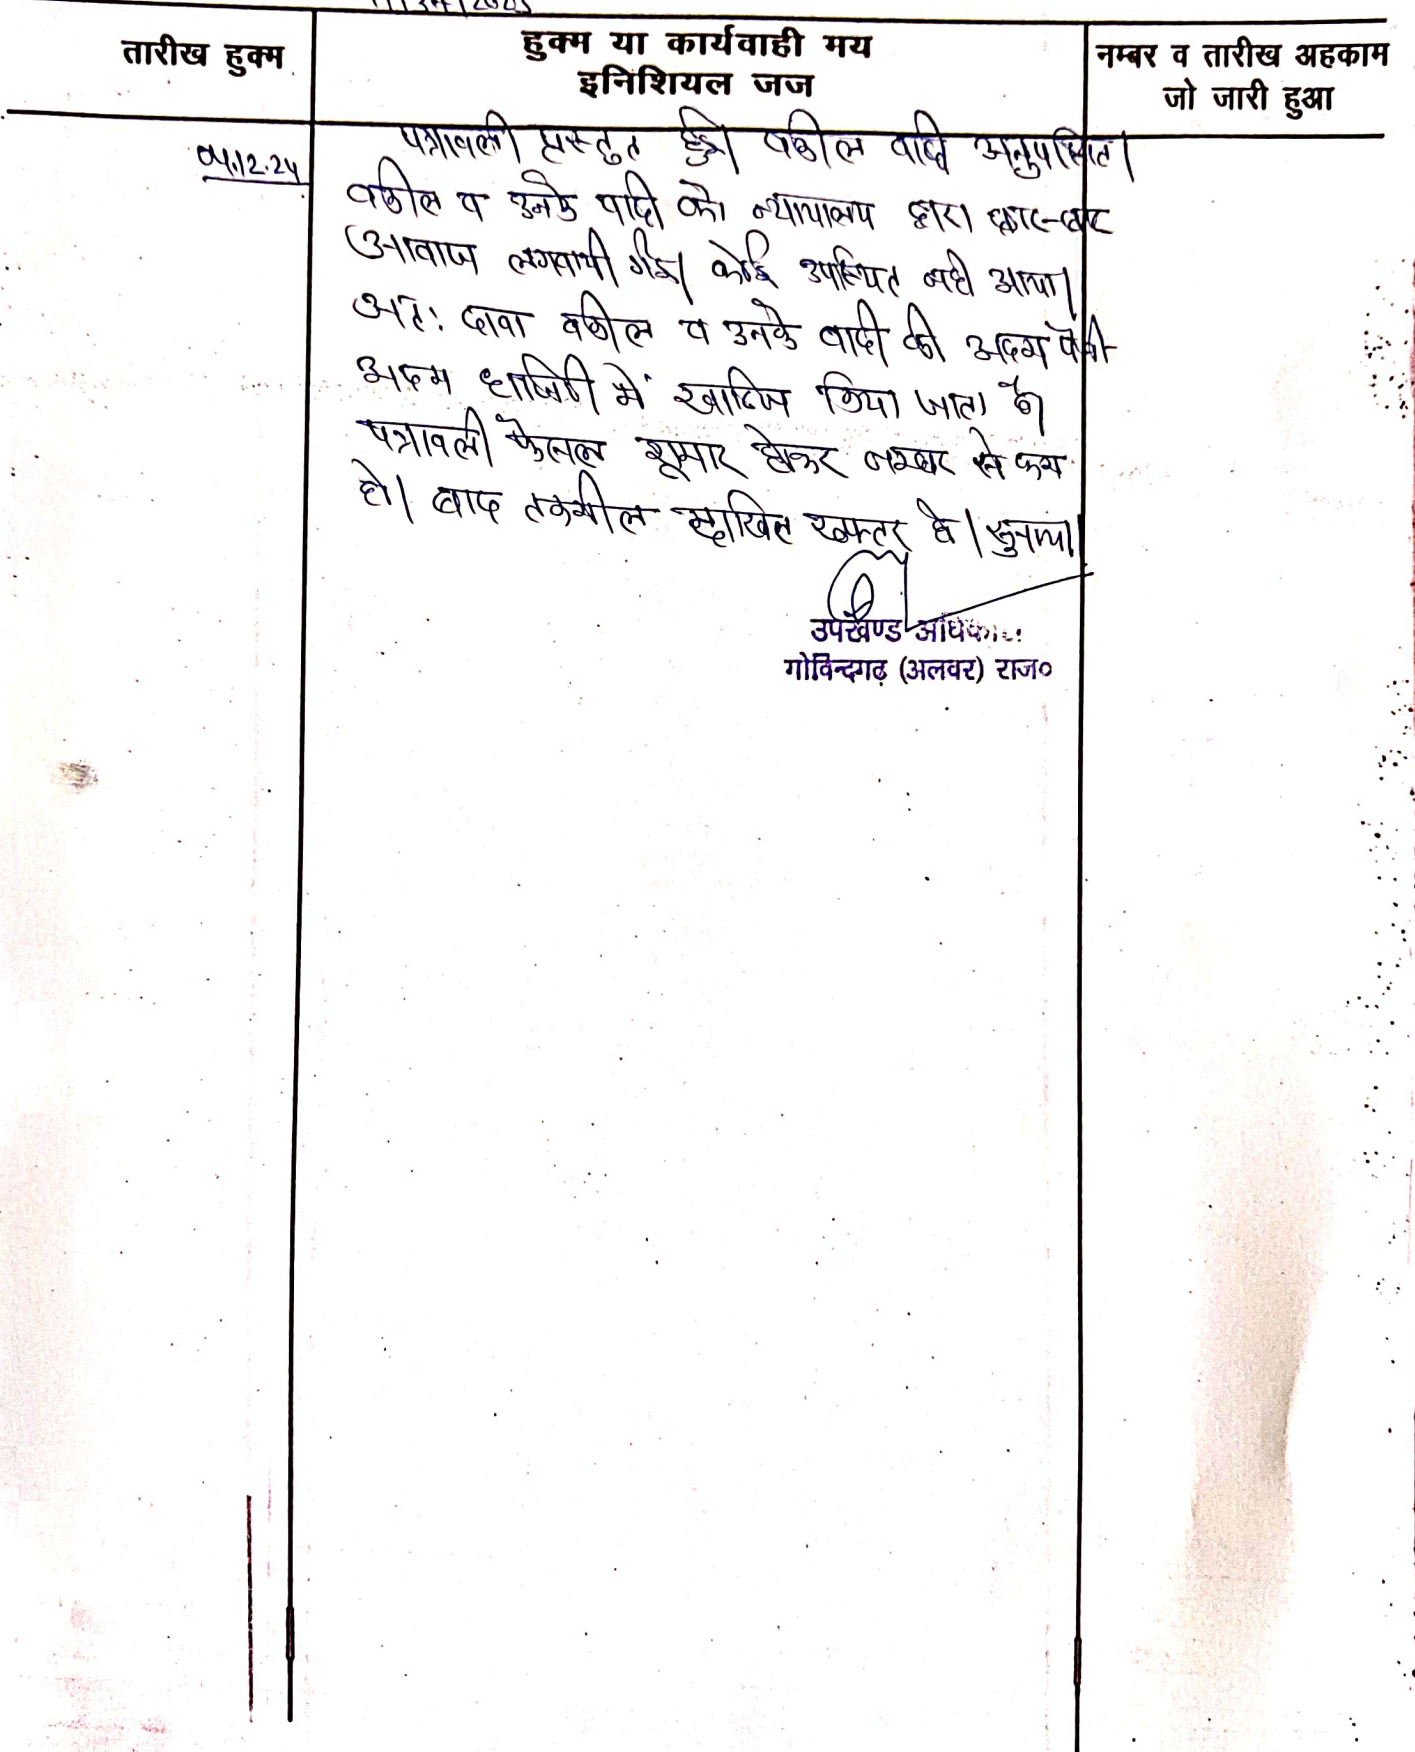 तारीख हुक्म
हुक्म या कार्यवाही मय
इनिशियल जज
नम्बर व तारीख अहकाम
जो जारी हुआ
04.12.24
पत्रावली प्रस्तुत हुई। वकील वादी अनुपस्थित।
वकील व उनके वादी को न्यायालय द्वारा बार-बार
आवाज लगवायी गई। कोई उपस्थित नही आया।
अतः दावा वकील व उनके वादी की अदम पैरवी
अदम हाजिरी में खारिज किया जाता है।
पत्रावली फैसल शुमार होकर नम्बर से कम
हो। बाद तकमील दाखिल दफ्तर हो। सुनाया।
उपखण्ड अधिकारी
गोविन्दगढ़ (अलवर) राज०